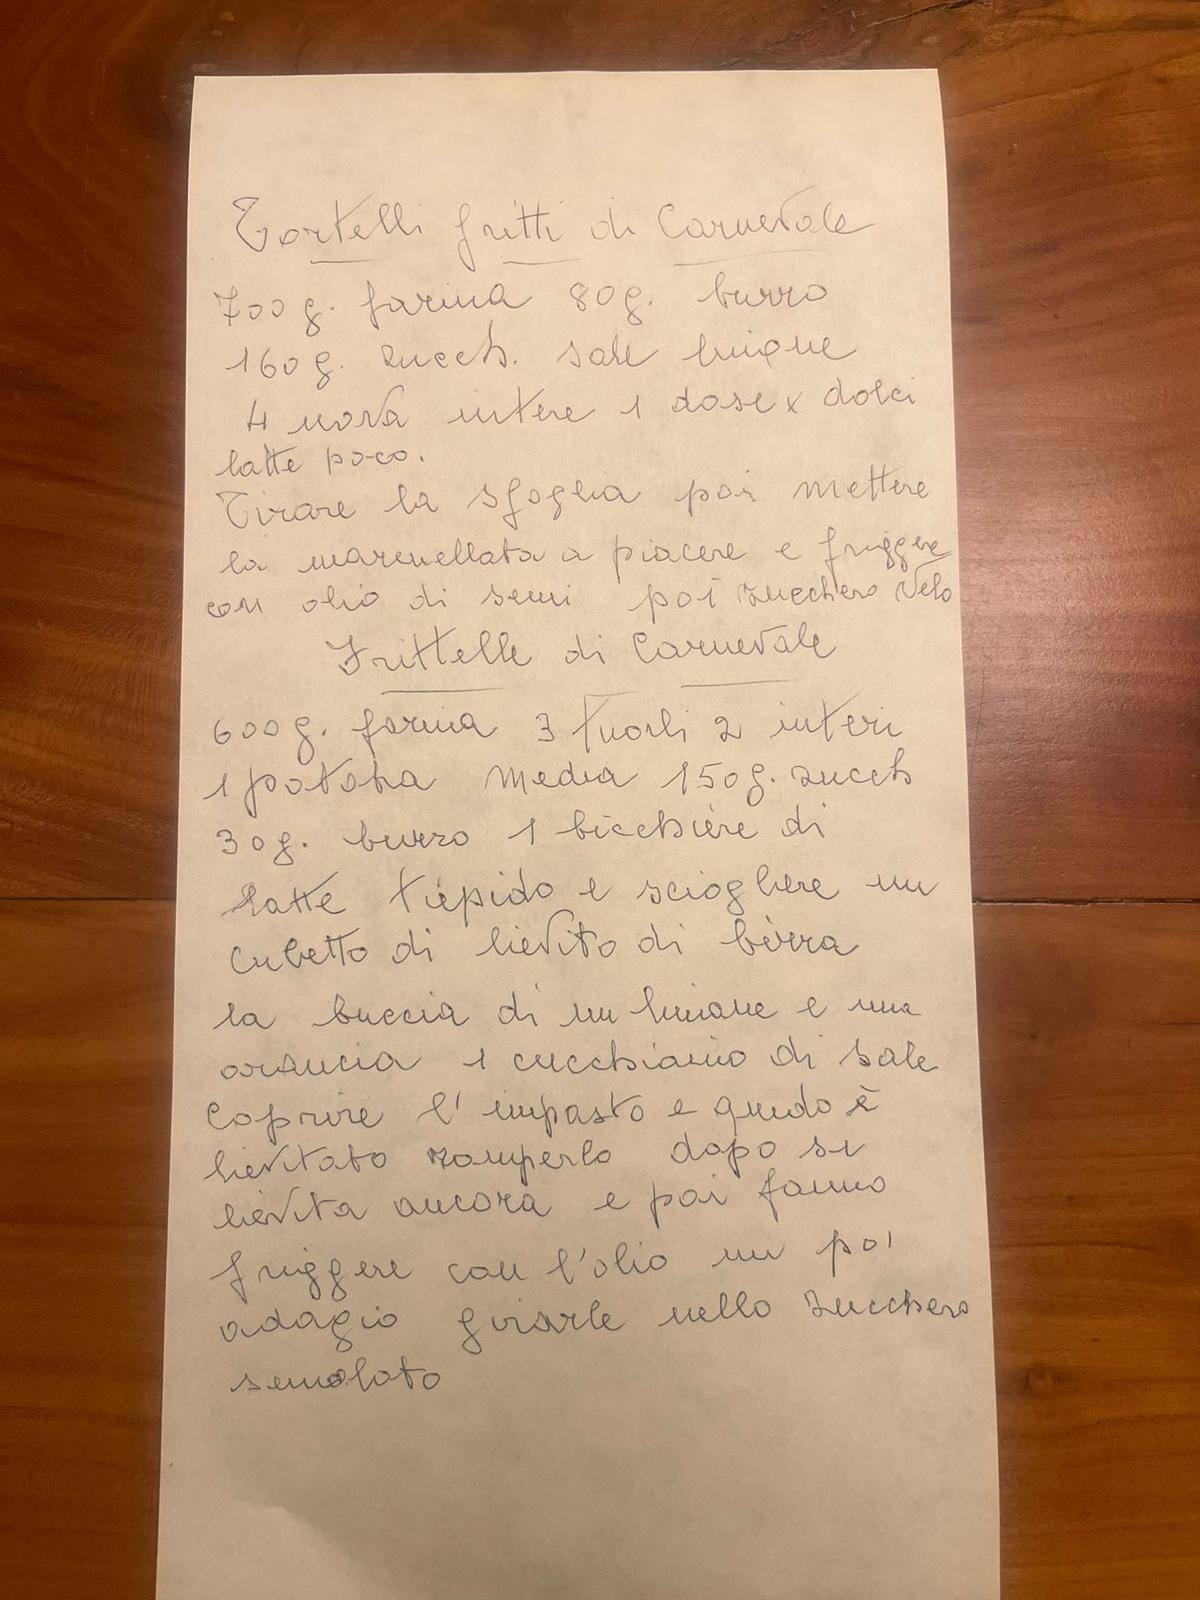 Tortelli fritti di Carnevale
700g. farina 80g. burro
160g. zucch. sale limone
4 uova intere 1 dose x dolci
latte poco.
Tirare la sfoglia poi mettere
la marmellata a piacere e friggere
con olio di semi poi zucchero velo
Frittelle di Carnevale
600g. farina 3 tuorli 2 interi
1 patata media 150g. zucch
30g. burro 1 bicchiere di
latte tiepido e sciogliere un
cubetto di lievito di birra
la buccia di un limone e una
arancia 1 cucchiaino di sale
Coprire l'impasto e quado è
lievitato romperlo dopo si
lievita ancora e poi fanno
friggere con l'olio un po'
adagio girarle nello zucchero
semolato